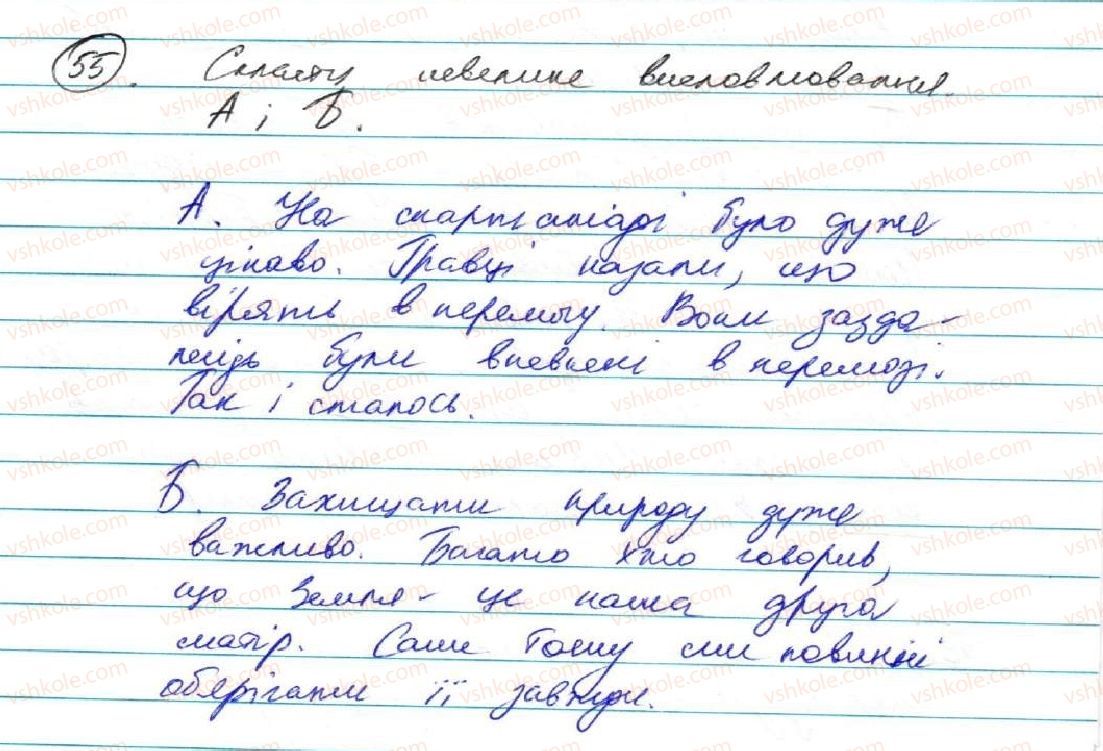 55. Скласти невелике висловлювання
А і Б.
А. На спартакіаді було дуже
цікаво. Гравці казали, що
вірять в перемогу. Вони зазда-
легідь були впевнені в перемозі.
Так і сталось.
Б. Захищати природу дуже
важливо. Багато хто говорив,
що Земля - це наша друга
матір. Саме тому ми повинні
оберігати її завжди.